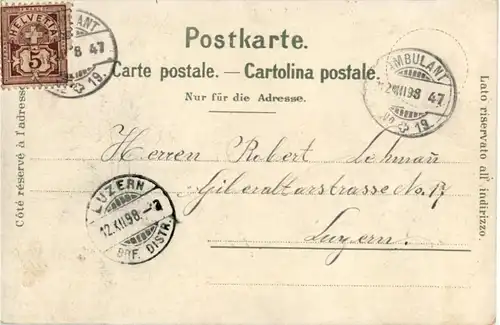 HELVETIA
15
AMBULANT
98 47
19.
Postkarte.
Carte postale. — Cartolina postale.
Nur für die Adresse.
AMBULANT
12 XII 98 47
No 19
Côté réservé à l'adresse.
Lato riservato all' indirizzo.
Herren Robert Lehman̄
Giberaltarstrasse No. 17
Luzern.
LUZERN
12.XII.98.-7
BRF. DISTR.